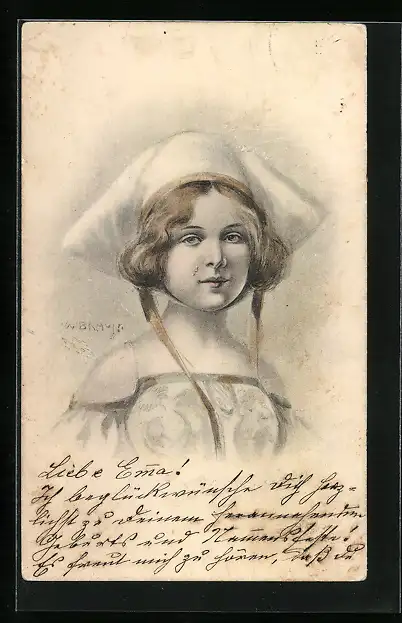 W. BRAUN
Liebe Em̅a!
Ich beglückwünsche Dich herz-
lichst zu Deinem herannahenden
Geburts und Namensfeste!
Es freut mich zu hören, daß du